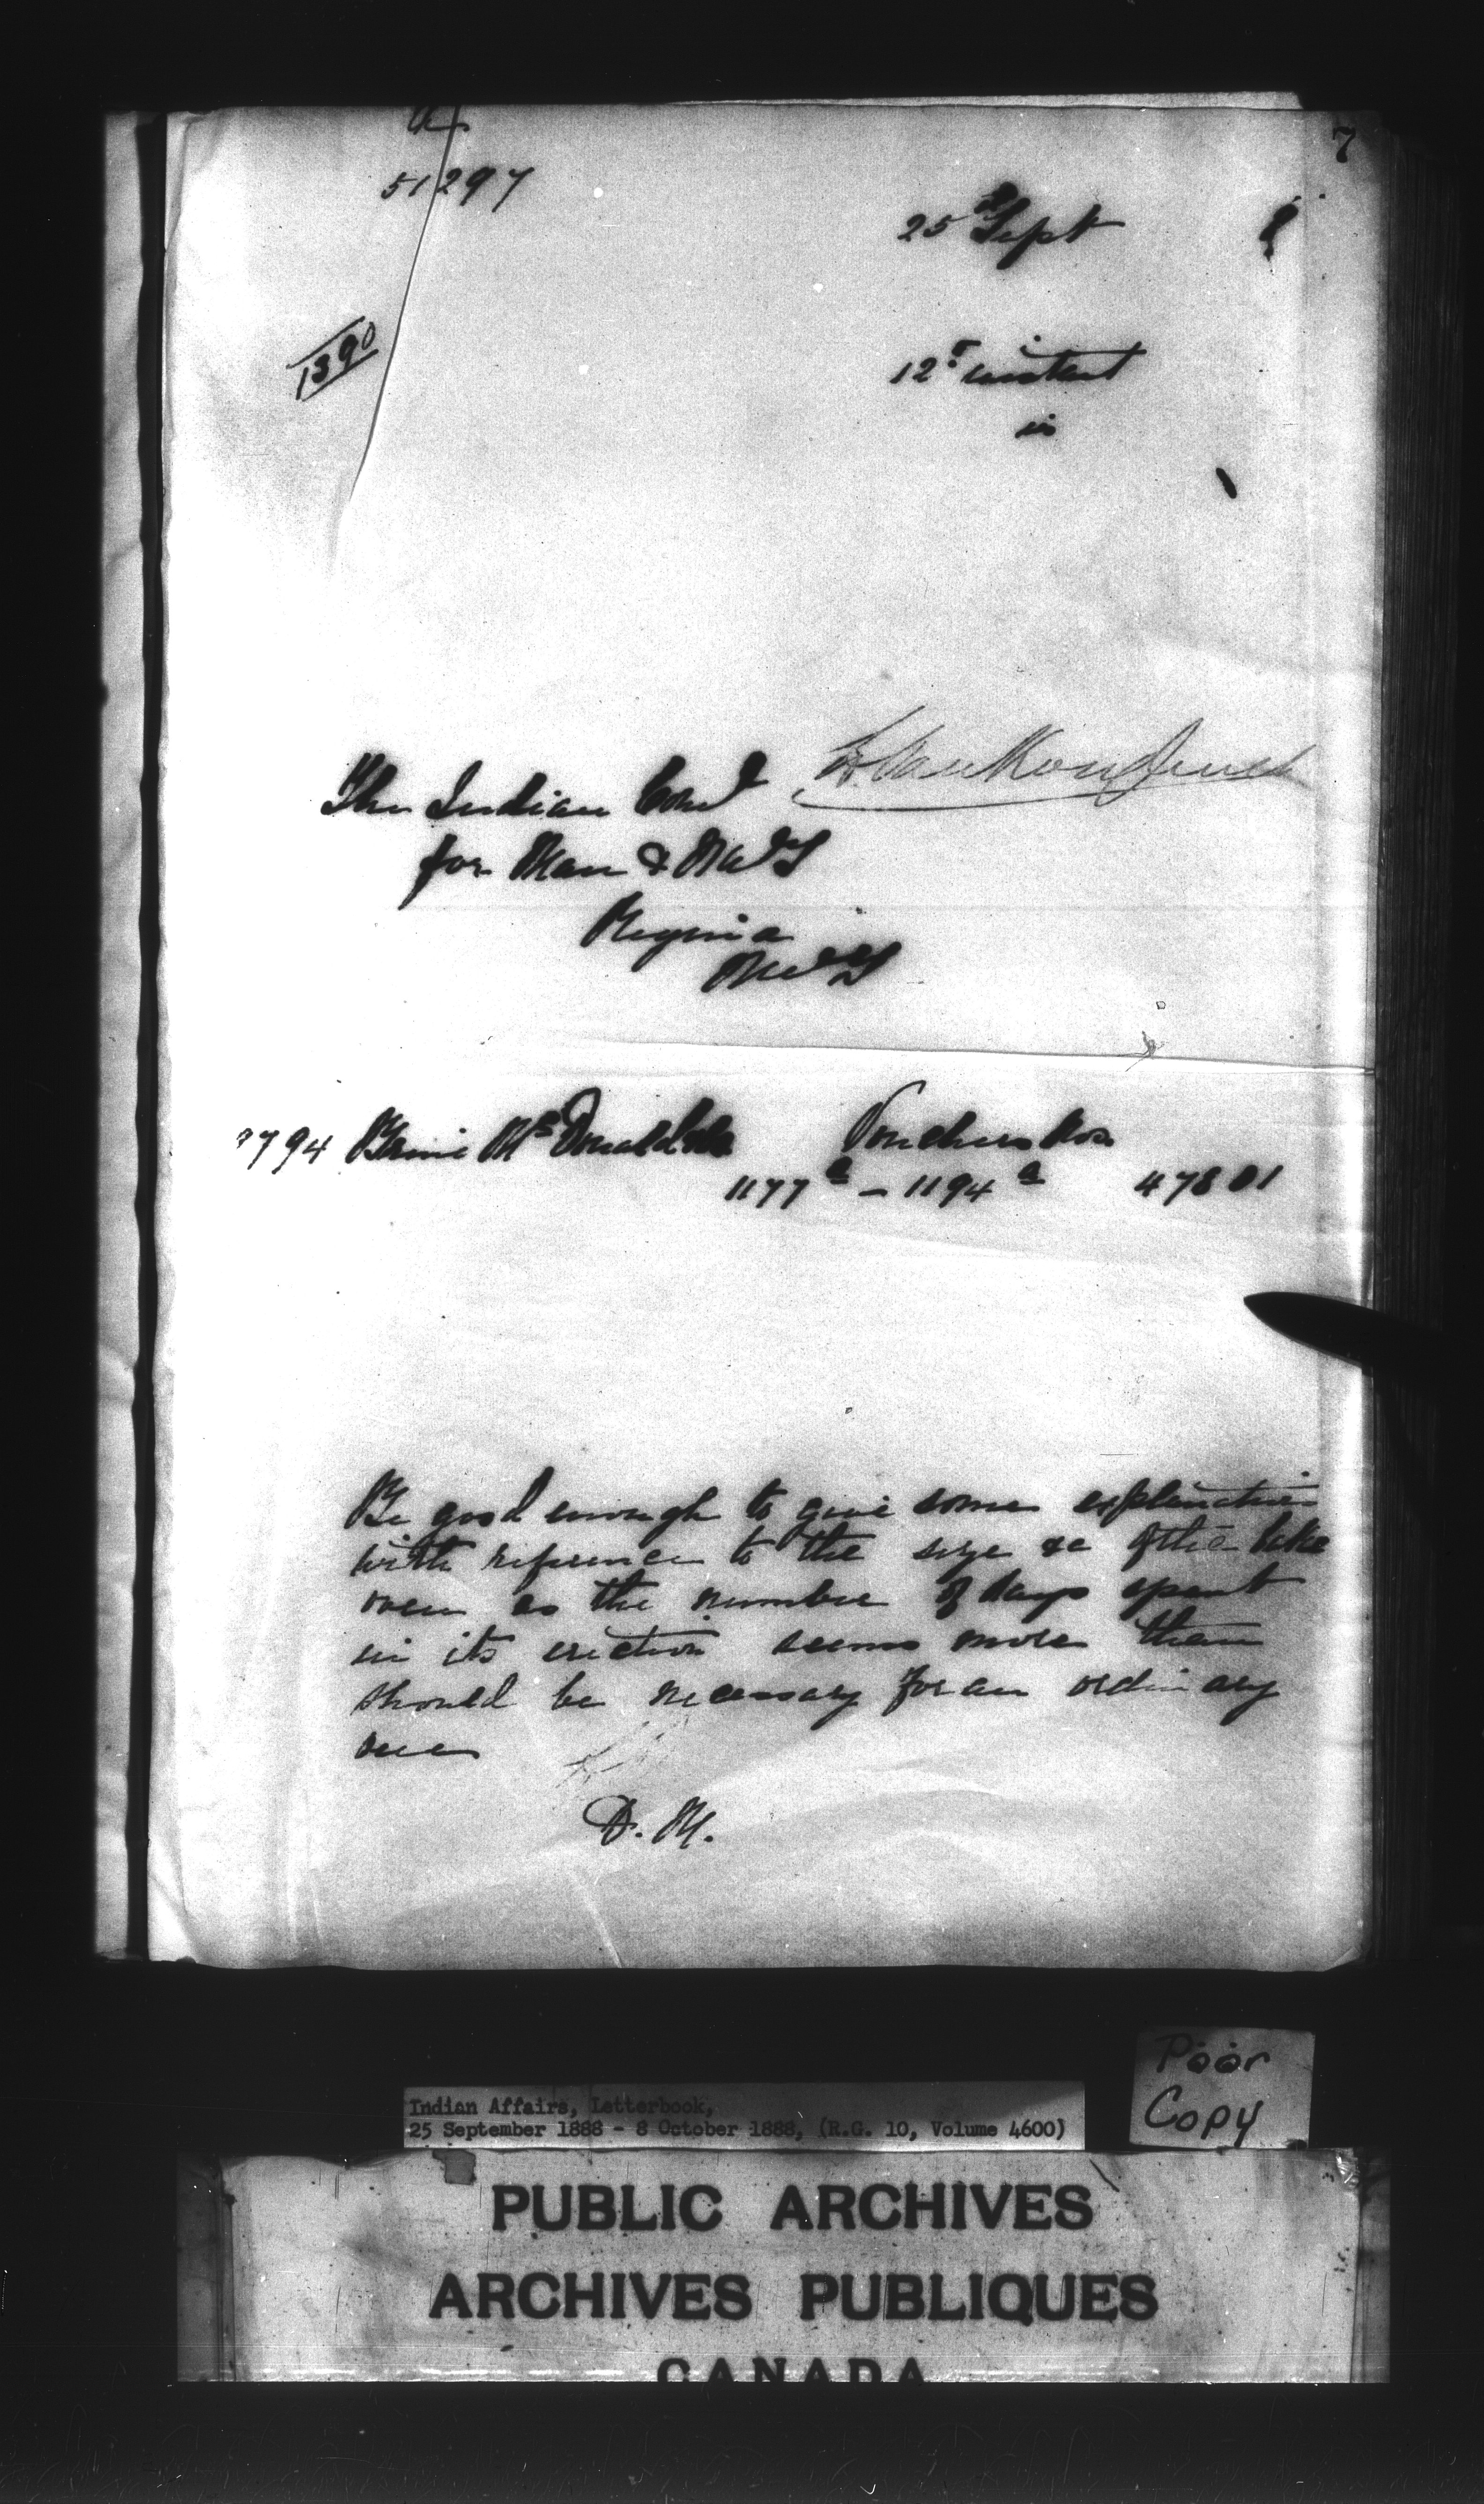 7
51297
25 Sept 8
1390
12th instant
is
The Indian Comr
for Man & NWT
Regina
NWT
Vouchers Nos
1177a – 1194a 47801
Be good enough to give some explanation
with reference to the size &c of the bake
oven as the number of days spent
in its erection seems more than
should be necessary for an ordinary
one
D. M.
Poor
Copy
Indian Affairs, Letterbook,
25 September 1888 - 8 October 1888, (R.G. 10, Volume 4600)
PUBLIC ARCHIVES
ARCHIVES PUBLIQUES
CANADA